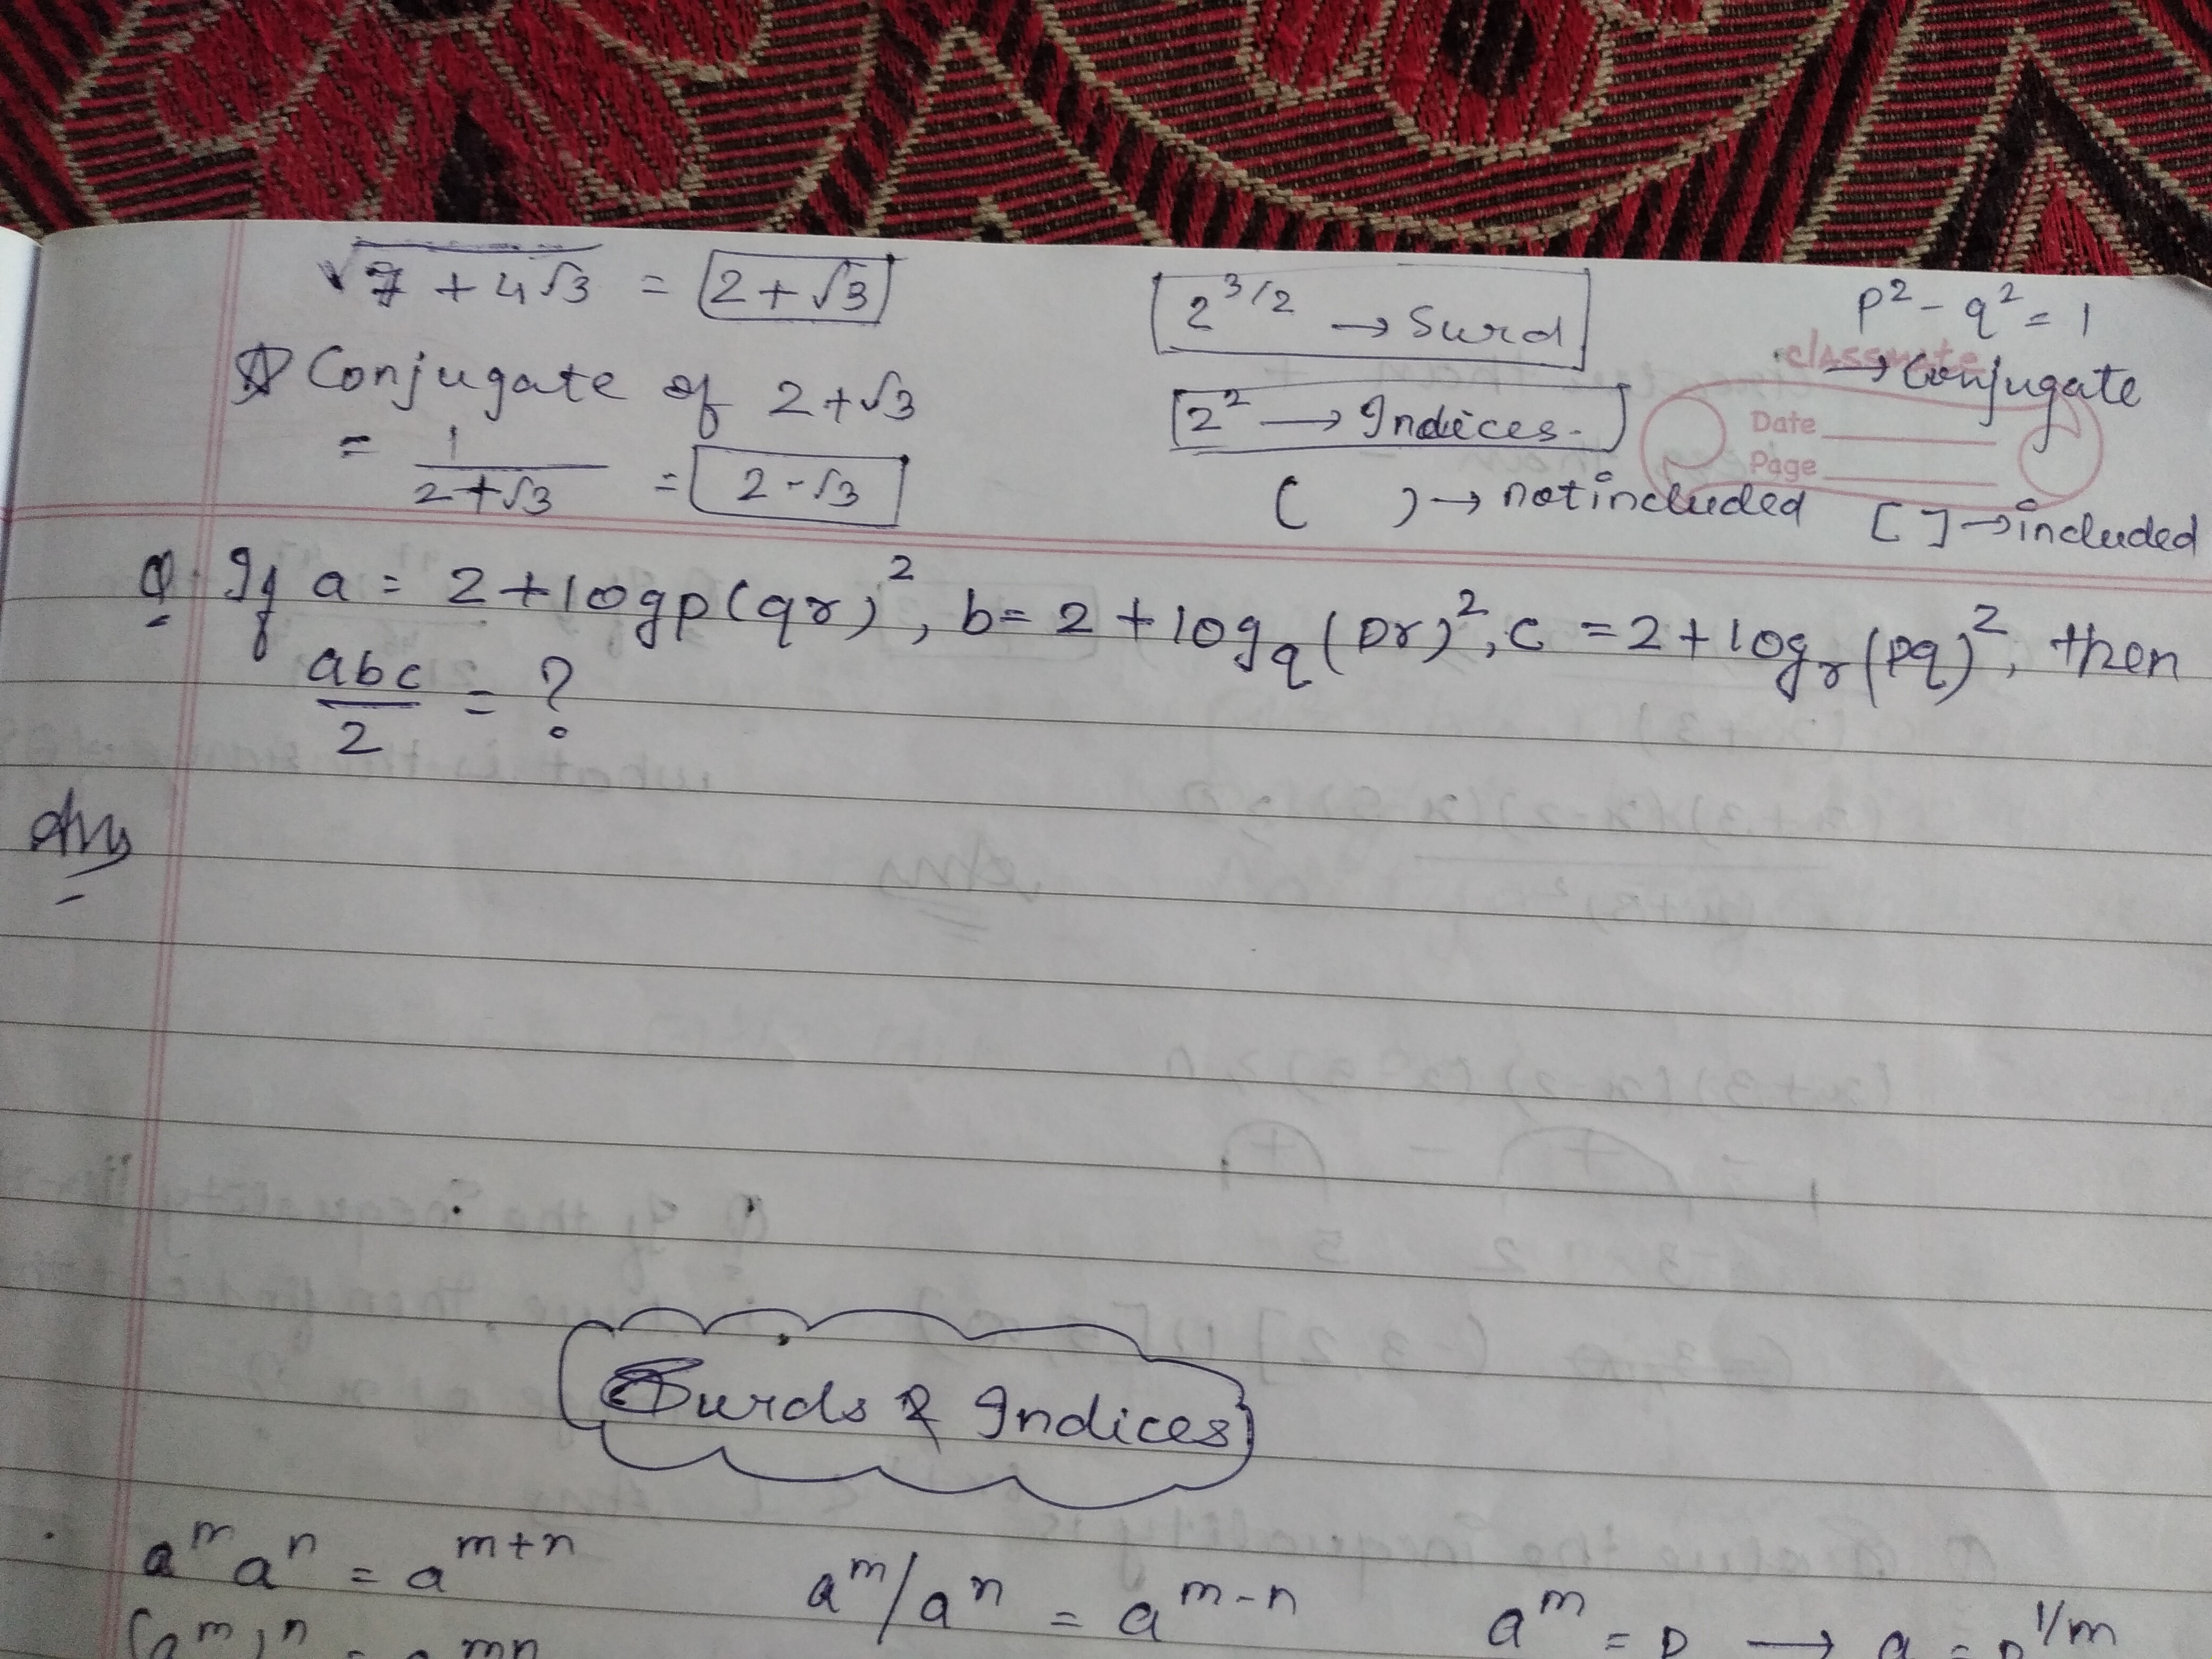 √7 + 4√3 = 2 + √3
2^3/2 → Surd
p² - q² = 1
→ Conjugate
classmate
Conjugate of 2 + √3
2² → Indices.
Date
Page
= 1/2+√3 = 2 - √3
( ) → not included [ ] → included
Q. If a = 2 + logp(qr)², b = 2 + log_q(pr)², c = 2 + log_r(pq)², then
abc/2 = ?
Ans
Surds & Indices
a^m a^n = a^m+n a^m/a^n = a^m-n a^m = p → a = p^1/m
(a^m)^n = a^mn